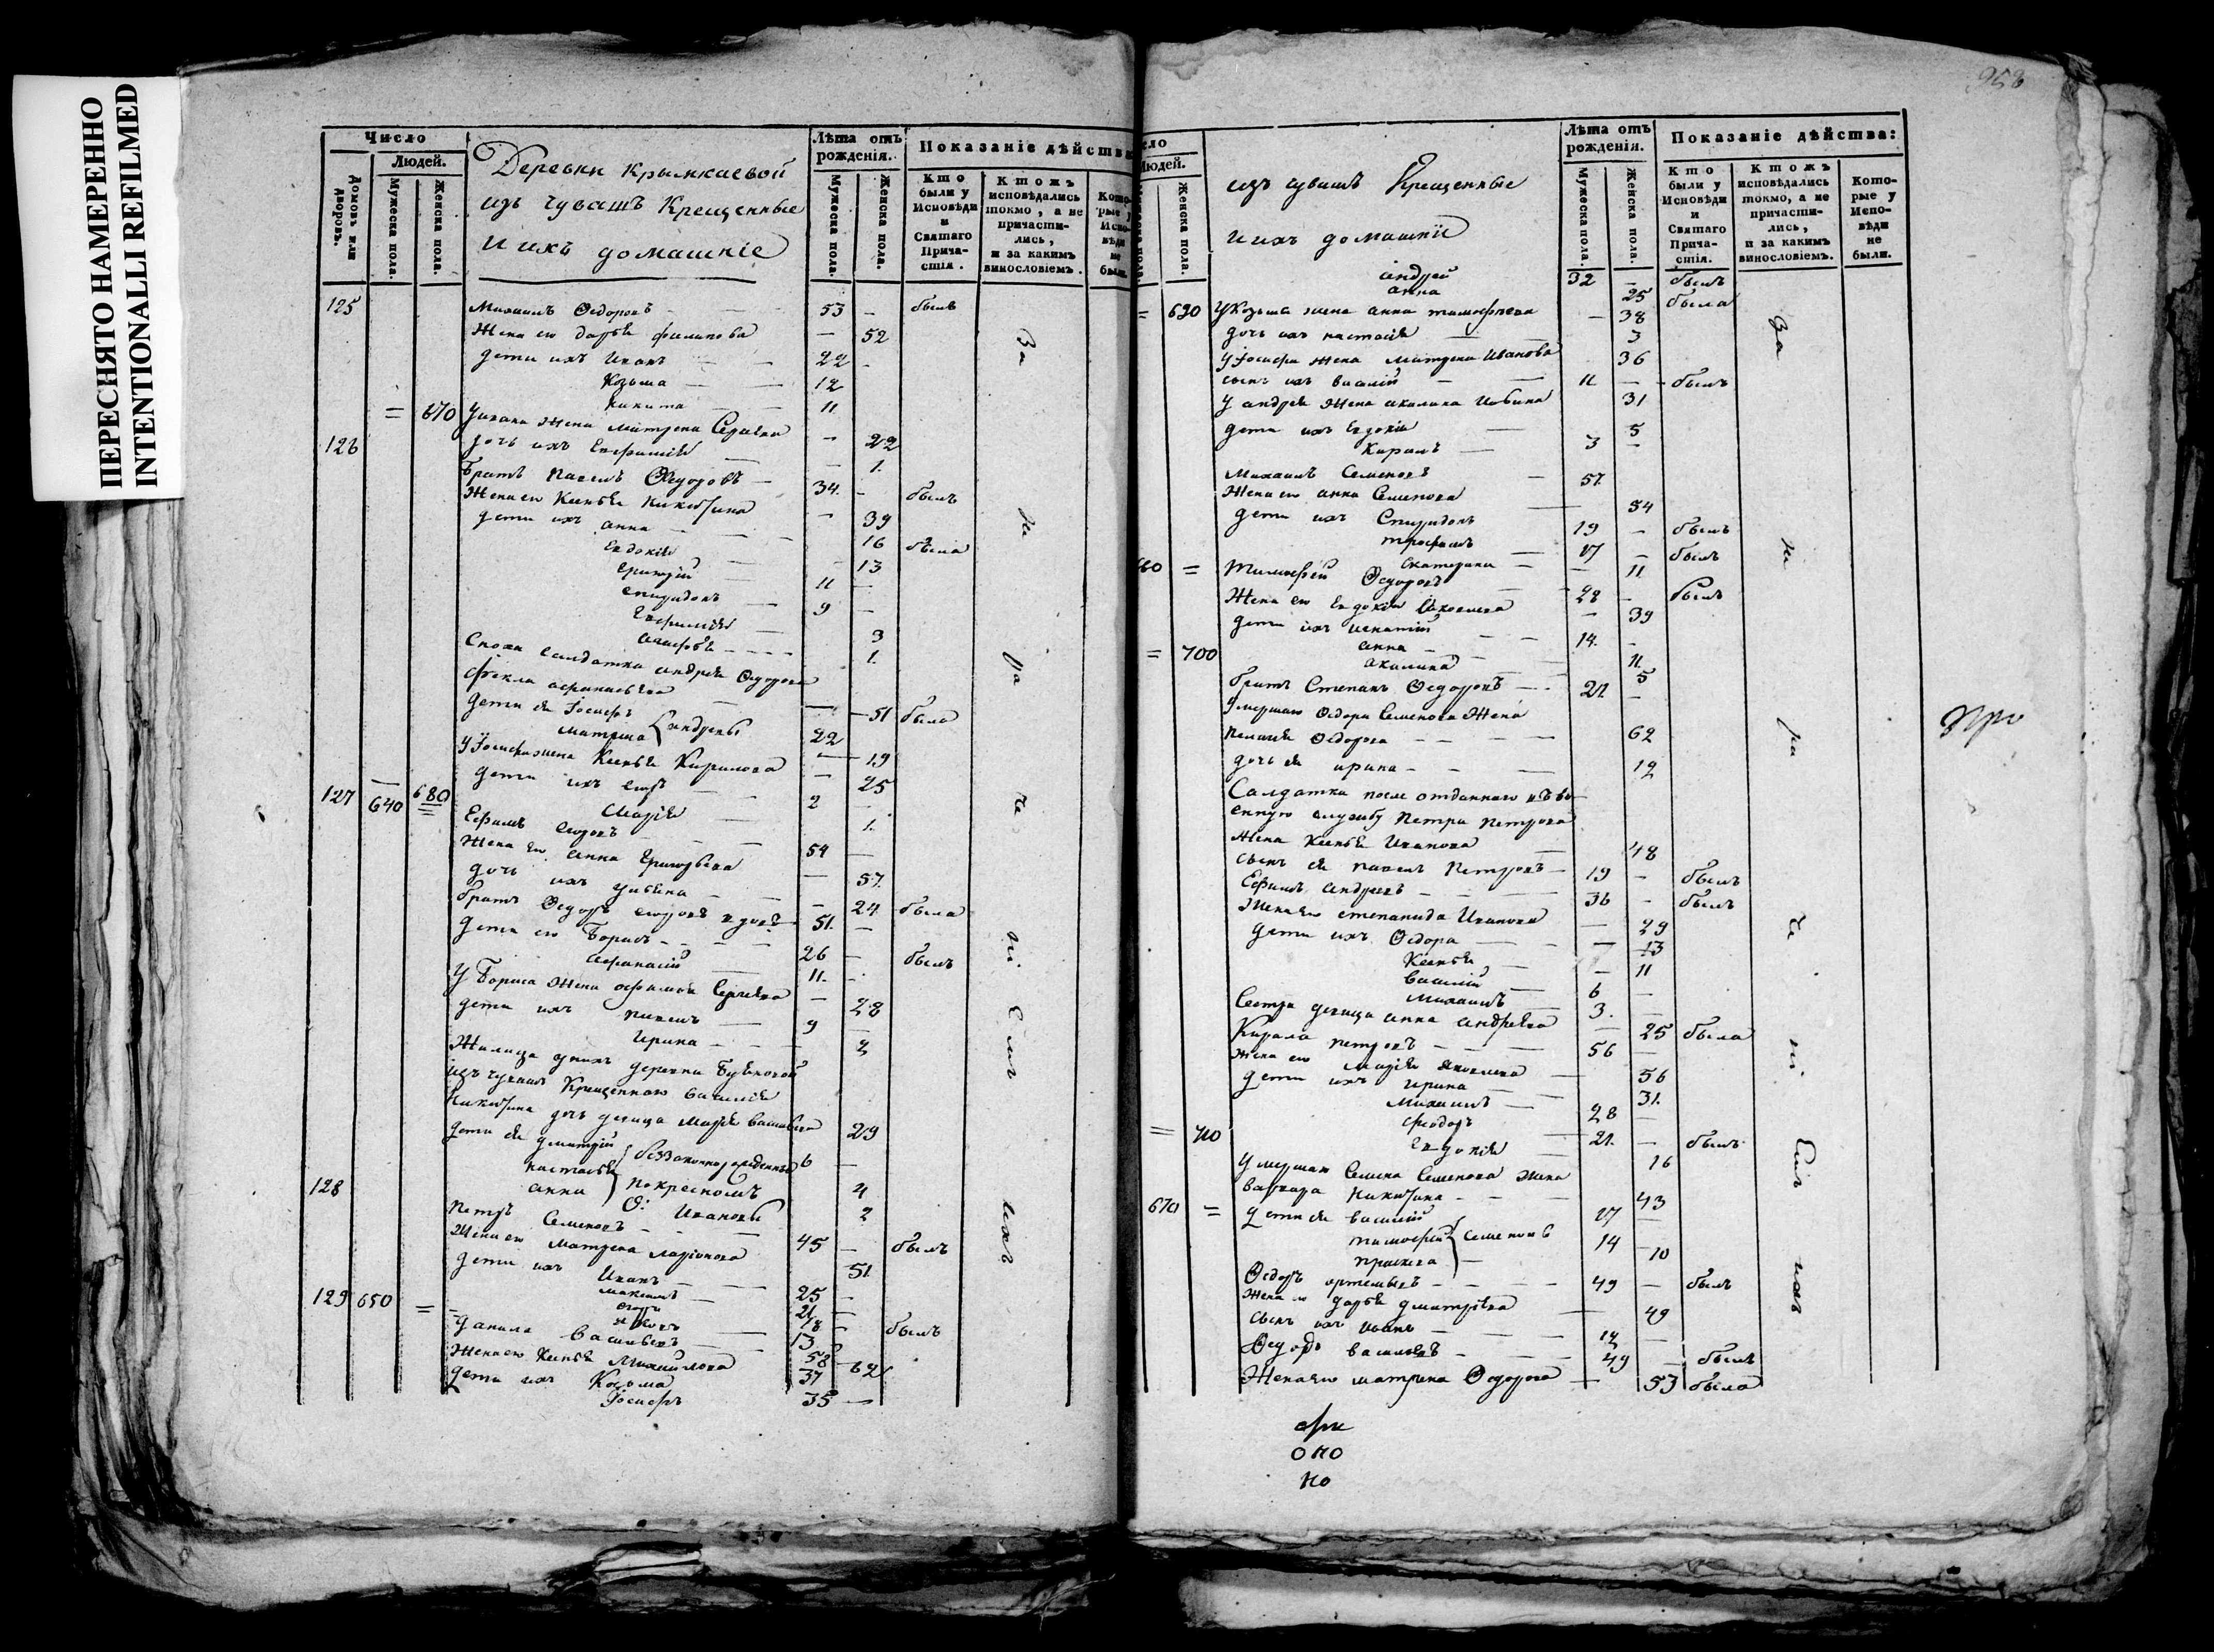 ПЕРЕСНЯТО НАМЕРЕННО
INTENTIONALLI REFILMED
Число
Людей.
Домовъ или дворовъ.
Мужеска пола.
Женска пола.
Деревни Крымкаевой
изъ Чувашъ Крещенные
и ихъ домашніе
Лѣта отъ рожденія.
Мужеска пола.
Женска пола.
Показаніе дѣйства
Кто были у Исповѣди и Святаго Причастія.
Ктожъ исповѣдались токмо, а не причастились, и за какимъ винословіемъ.
Которые у Исповѣди не были.
125 Михаилъ Ѳедоровъ — 53 — былъ
Жена его дарья филипова — 52
дети ихъ Иванъ — 22 —
Козьма — 12
никита — 11
= 670 Уивана жена матрена Сергеева — 22
126 дочь ихъ Евфимия — 1.
Братъ Павелъ Ѳедоровъ — 34 — былъ
Жена его Ксенья Никитина — 39
дети ихъ анна — 16 была
Евдокия — 13
Григорій 11 —
спиридонъ — 9 —
Евфимия — 3
агафья — 1.
Сноха Салдатка андрея Ѳедорова
фекла афанасьева — 51 была
дети ея Іосифъ 22
матрена } андреевы — 19
УІосифа жена Ксенья Кирилова — 25
дети ихъ 2 —
Марія — 1.
127 640 680 Ефимъ — 54 —
Жена его анна Григорьева — 57.
дочь ихъ — 24 была
братъ Ѳедоръ вдовъ 51. —
дети его Борисъ — 26 — былъ
афанасій 11. —
У Бориса жена Сергеева — 28
дети ихъ павелъ — 9 —
Ирина — 2
Жилица унихъ деревни
изъ чувашъ Крещенного василія
Никитина дочь девица марія васильева 29
дети ея дмитрій } беззаконнорожденные 6 —
настасья } покрестномъ 4
анна } О: Ивановы 2
128 Петръ Семеновъ — 45 — былъ
Жена его матрена ларіонова 51
дети ихъ Иванъ — 25 —
максимъ — 21 —
18 — былъ
13
129 650 = данила васильевъ 58
Жена его Ксенья Михайлова 62
дети ихъ Козьма 37
Іосифъ 35 —
За
не
ра
че
ні
емъ
ихъ
958
ло
Людей.
Мужеска пола.
Женска пола.
изъ чувашъ Крещенные
и ихъ домашніи
Лѣта отъ рожденія.
Мужеска пола.
Женска пола.
Показаніе дѣйства:
Кто были у Исповѣди и Святаго Причастія.
Ктожъ исповѣдались токмо, а не причастились, и за какимъ винословіемъ.
Которые у Исповѣди не были.
андрей 32 — былъ
анна 25 была
= 690 УКозьма жена анна тимофеева — 38
дочь ихъ настасія — 3
уІосифа жена Матрена Иванова 36
сынъ ихъ василій — 11 — былъ
у андрея жена акилина 31
дети ихъ Евдокия — 5
Кирилъ — 3 —
Михаилъ Семеновъ — 57.
Жена его анна Семенова — 54
дети ихъ Спиридонъ 19 — былъ
трофимъ — 17 — былъ
Екатерина — 11
660 = Тимофей Ѳедоровъ — 28 — былъ
Жена его Евдокия Яковлева — 39
дети ихъ игнатій — 14. —
= 700 анна — 11.
акилина — 5
братъ Степанъ Ѳедоровъ — 21. —
Умершаго Ѳедора Семенова Жена
Пелагия Ѳедорова — 62
дочь ея ирина — 12
Салдатка после отданнаго въ во-
енную службу Петра Петрова
жена Ксенья Иванова — 48
сынъ ея павелъ Петровъ — 19 — былъ
Ефимъ андреевъ — 36 — былъ
Жена его степанида Иванова — 29
дети ихъ Ѳедора — 13
Ксенья — 11
василій — 6 —
Михаилъ — 3. —
Сестра девица анна андреева — 25 была
Кирила петровъ — 56 —
Жена его Марія яковлева — 56
дети ихъ Ирина — 31.
Михаилъ — 28 —
= 710 феодоръ — 21. — былъ
Евдокия — 16
Умершаго Семена Семенова жена
варвара Никитина — 43
670 = дети ея василій 17 —
тимофей } Семеновы 14 —
10
Ѳедоръ — 49 — былъ
Жена его дарья дмитріева — 49
сынъ ихъ иванъ — 12 —
Ѳедоръ васильевъ — 49 — былъ
Жена его матрена Ѳедорова — 53 была
За
не
ра
че
ні
емъ
ихъ
но